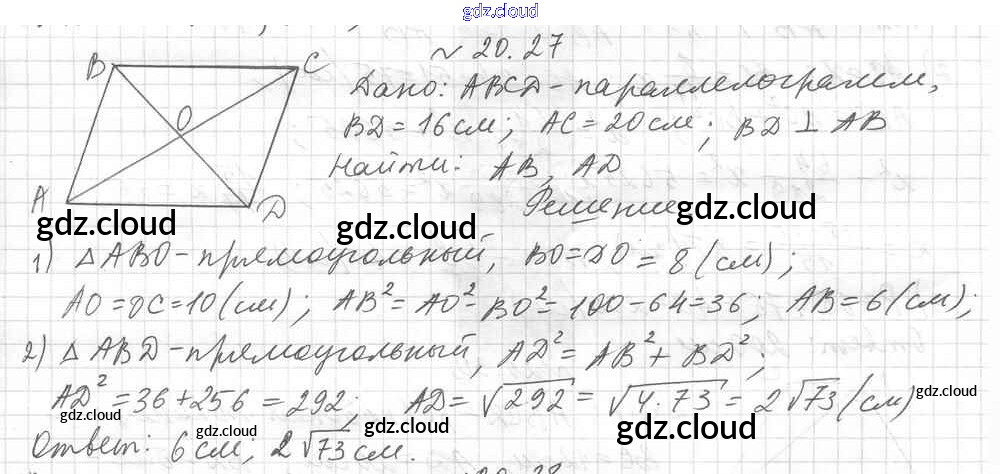 gdz.cloud
№ 20.27
B C
Дано: ABCD - параллелограмм,
O
BD = 16 см; AC = 20 см; BD ⊥ AB
Найти: AB, AD
A D
Решение
gdz.cloud gdz.cloud gdz.cloud
1) △ ABO - прямоугольный, BO = DO = 8 (см);
AO = OC = 10 (см); AB² = AO² - BO² = 100 - 64 = 36; AB = 6 (см);
2) △ ABD - прямоугольный, AD² = AB² + BD²;
AD² = 36 + 256 = 292; AD = √292 = √4·73 = 2√73 (см)
gdz.cloud gdz.cloud
Ответ: 6 см; 2√73 см.
gdz.cloud gdz.cloud gdz.cloud